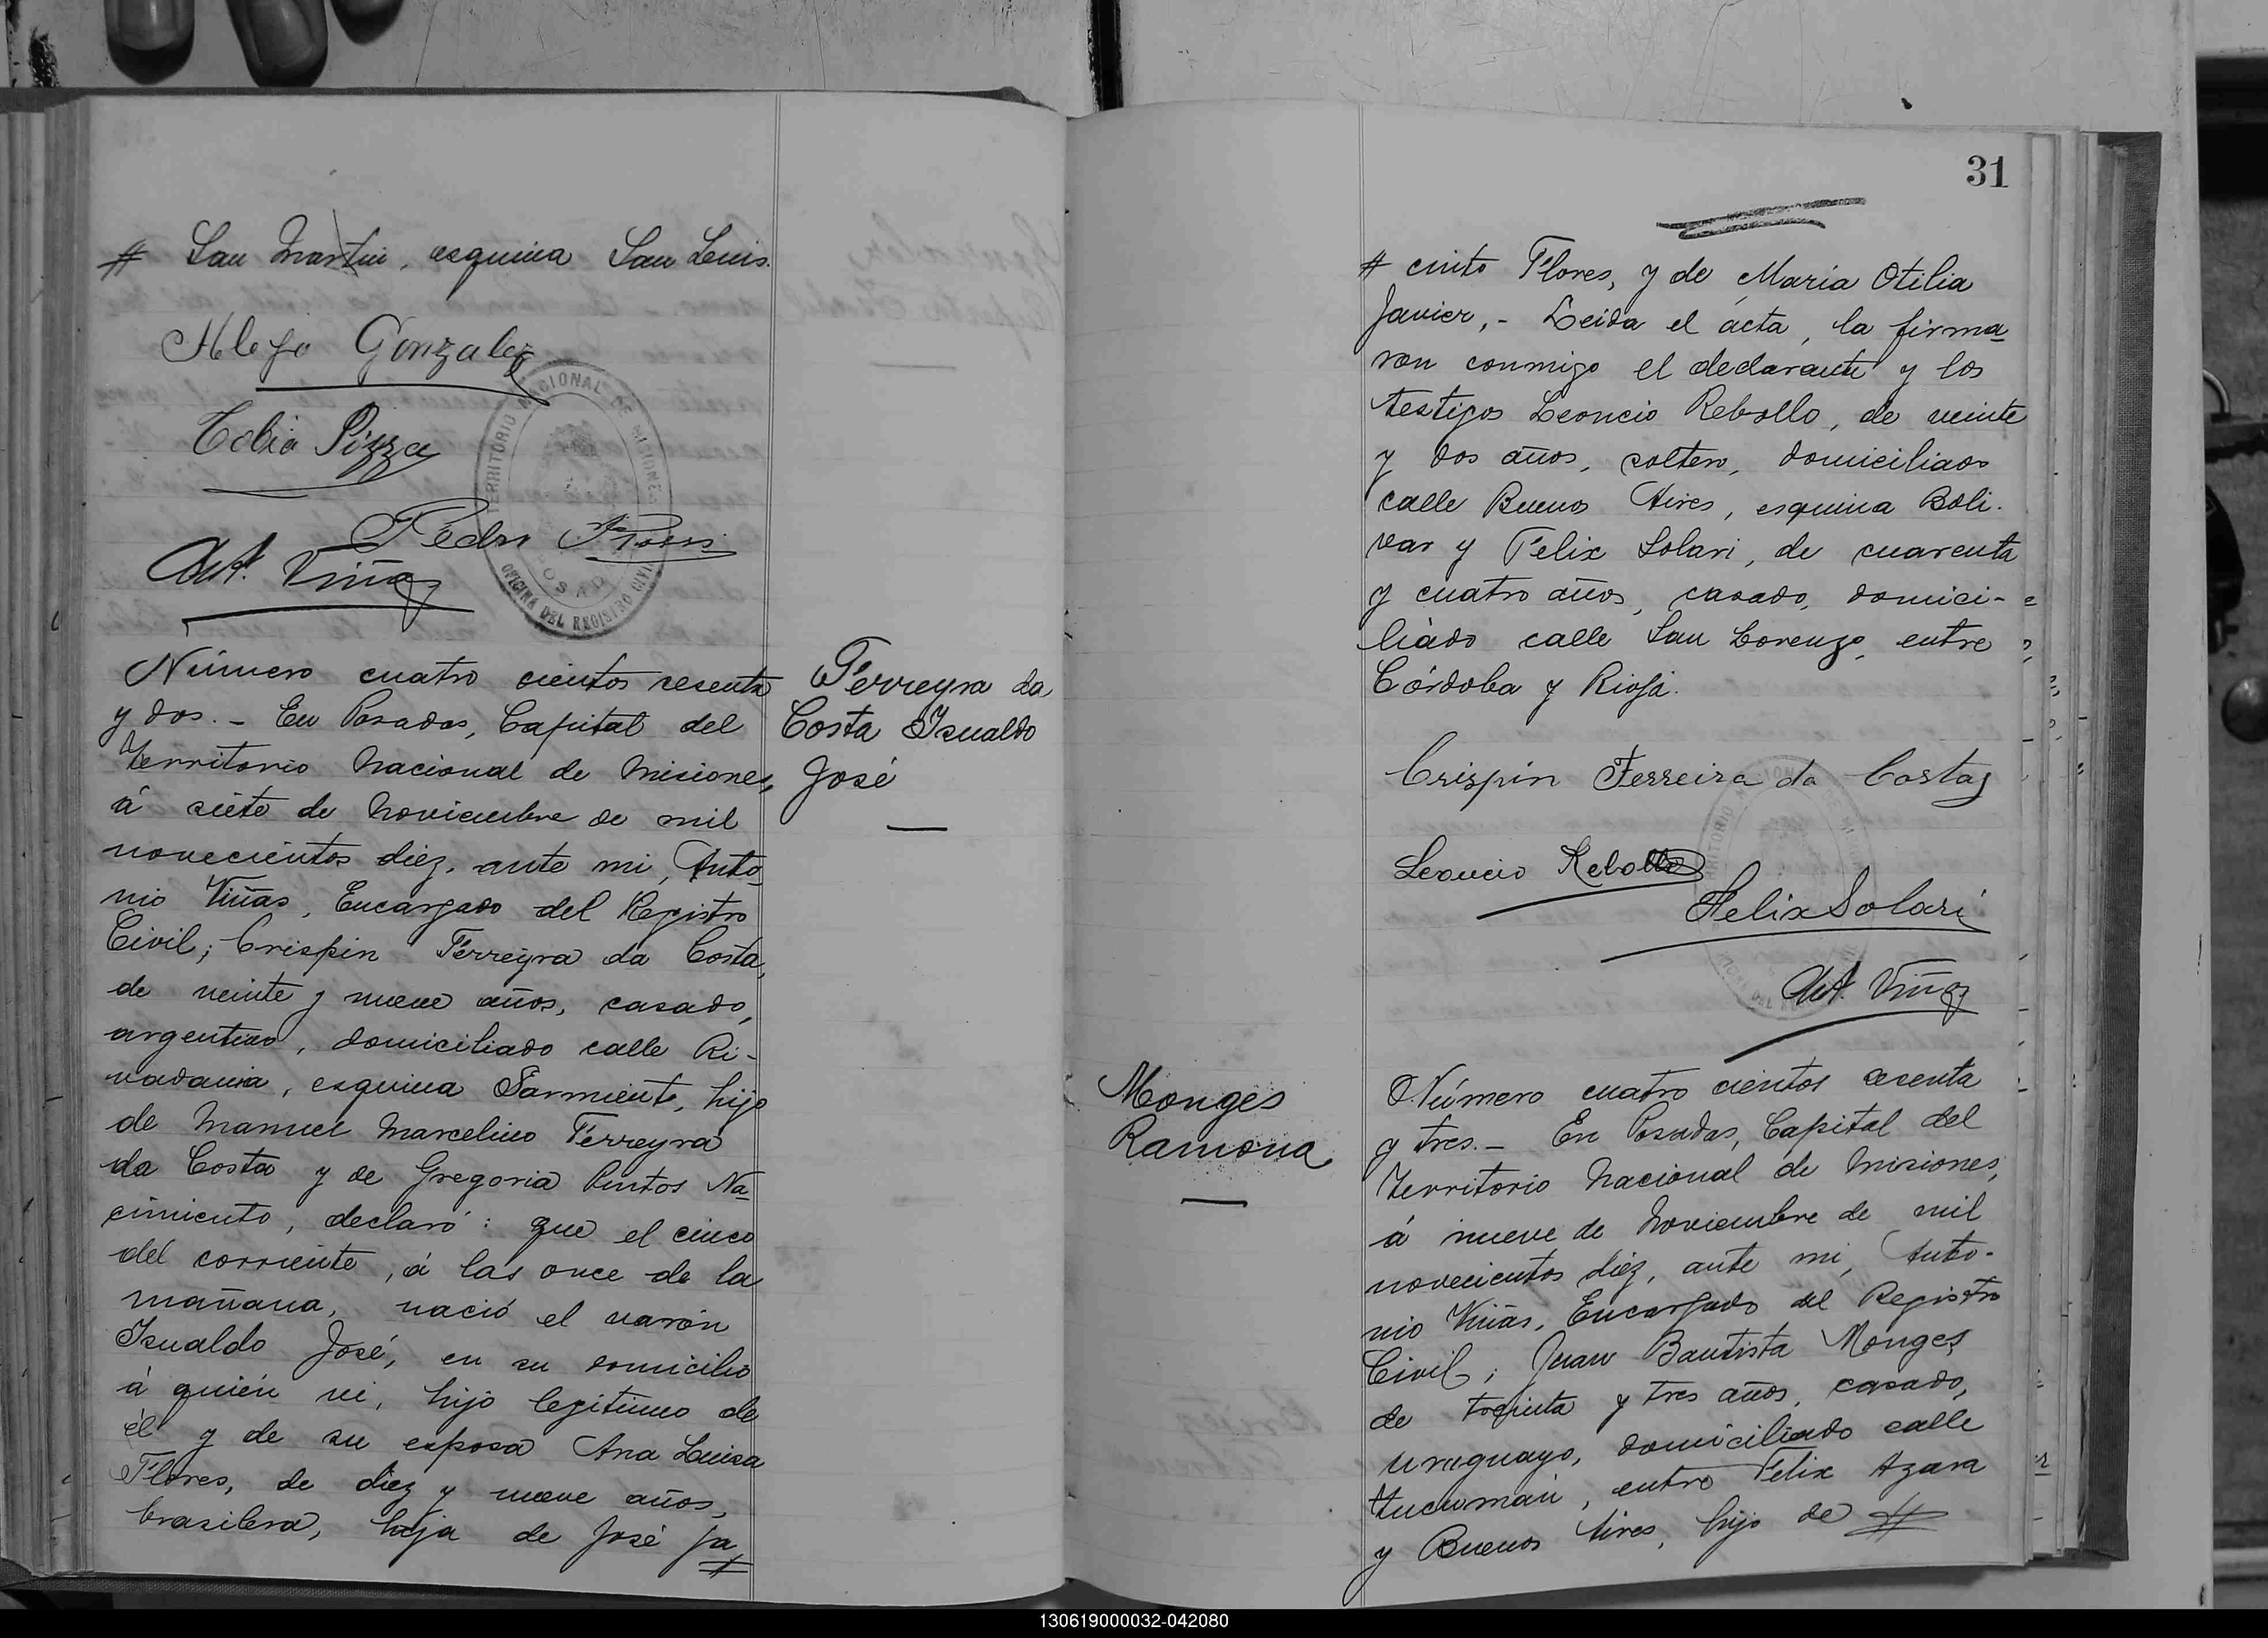 # San Martin, esquina San Luis.
Alejo Gonzalez
Pizza
Pedro
Ant. Viñas
TERRITORIO NACIONAL DE MISIONES
POSADAS
OFICINA DEL REGISTRO CIVIL
Número cuatro cientos sesenta
y dos. - En Posadas, Capital del
Territorio Nacional de Misiones,
á siete de Noviembre de mil
novecientos diez, ante mi, Anto-
nio Viñas, Encargado del Registro
Civil; Crispin Ferreyra da Costa,
de veinte y nueve años, casado,
argentino, domiciliado calle Ri-
vadavia, esquina Sarmiento, hijo
de Manuel Marcelino Ferreyra
da Costa y de Gregoria Pintos Na-
cimiento, declaró: que el cinco
del corriente, á las once de la
mañana, nació el varón
Isualdo José, en su domicilio
á quién vi, hijo legitimo de
él y de su esposa Ana Luisa
Flores, de diez y nueve años,
brasilera, hija de José Ja #
Ferreyra da
Costa Isualdo
José
31
# cinto Flores, y de María Otilia
Javier, - Leida el ácta, la firma-
ron conmigo el declarante y los
testigos Leoncio Rebollo, de veinte
y dos años, soltero, domiciliado
calle Buenos Aires, esquina Boli-
var y Felix Solari, de cuarenta
y cuatro años, casado, domici-
liado calle San Lorenzo, entre
Córdoba y Rioja.
Crispin Ferreira da Costa
Leoncio Rebollo
Felix Solari
Ant. Viñas
Monges
Ramona
Número cuatro cientos sesenta
y tres. - En Posadas, Capital del
Territorio Nacional de Misiones,
á nueve de Noviembre de mil
novecientos diez, ante mi, Anto-
nio Viñas, Encargado del Registro
Civil; Juan Bautista Monges
de treinta y tres años, casado,
uruguayo, domiciliado calle
Tucumán, entre Felix Azara
y Buenos Aires, hijo de #
130619000032-042080